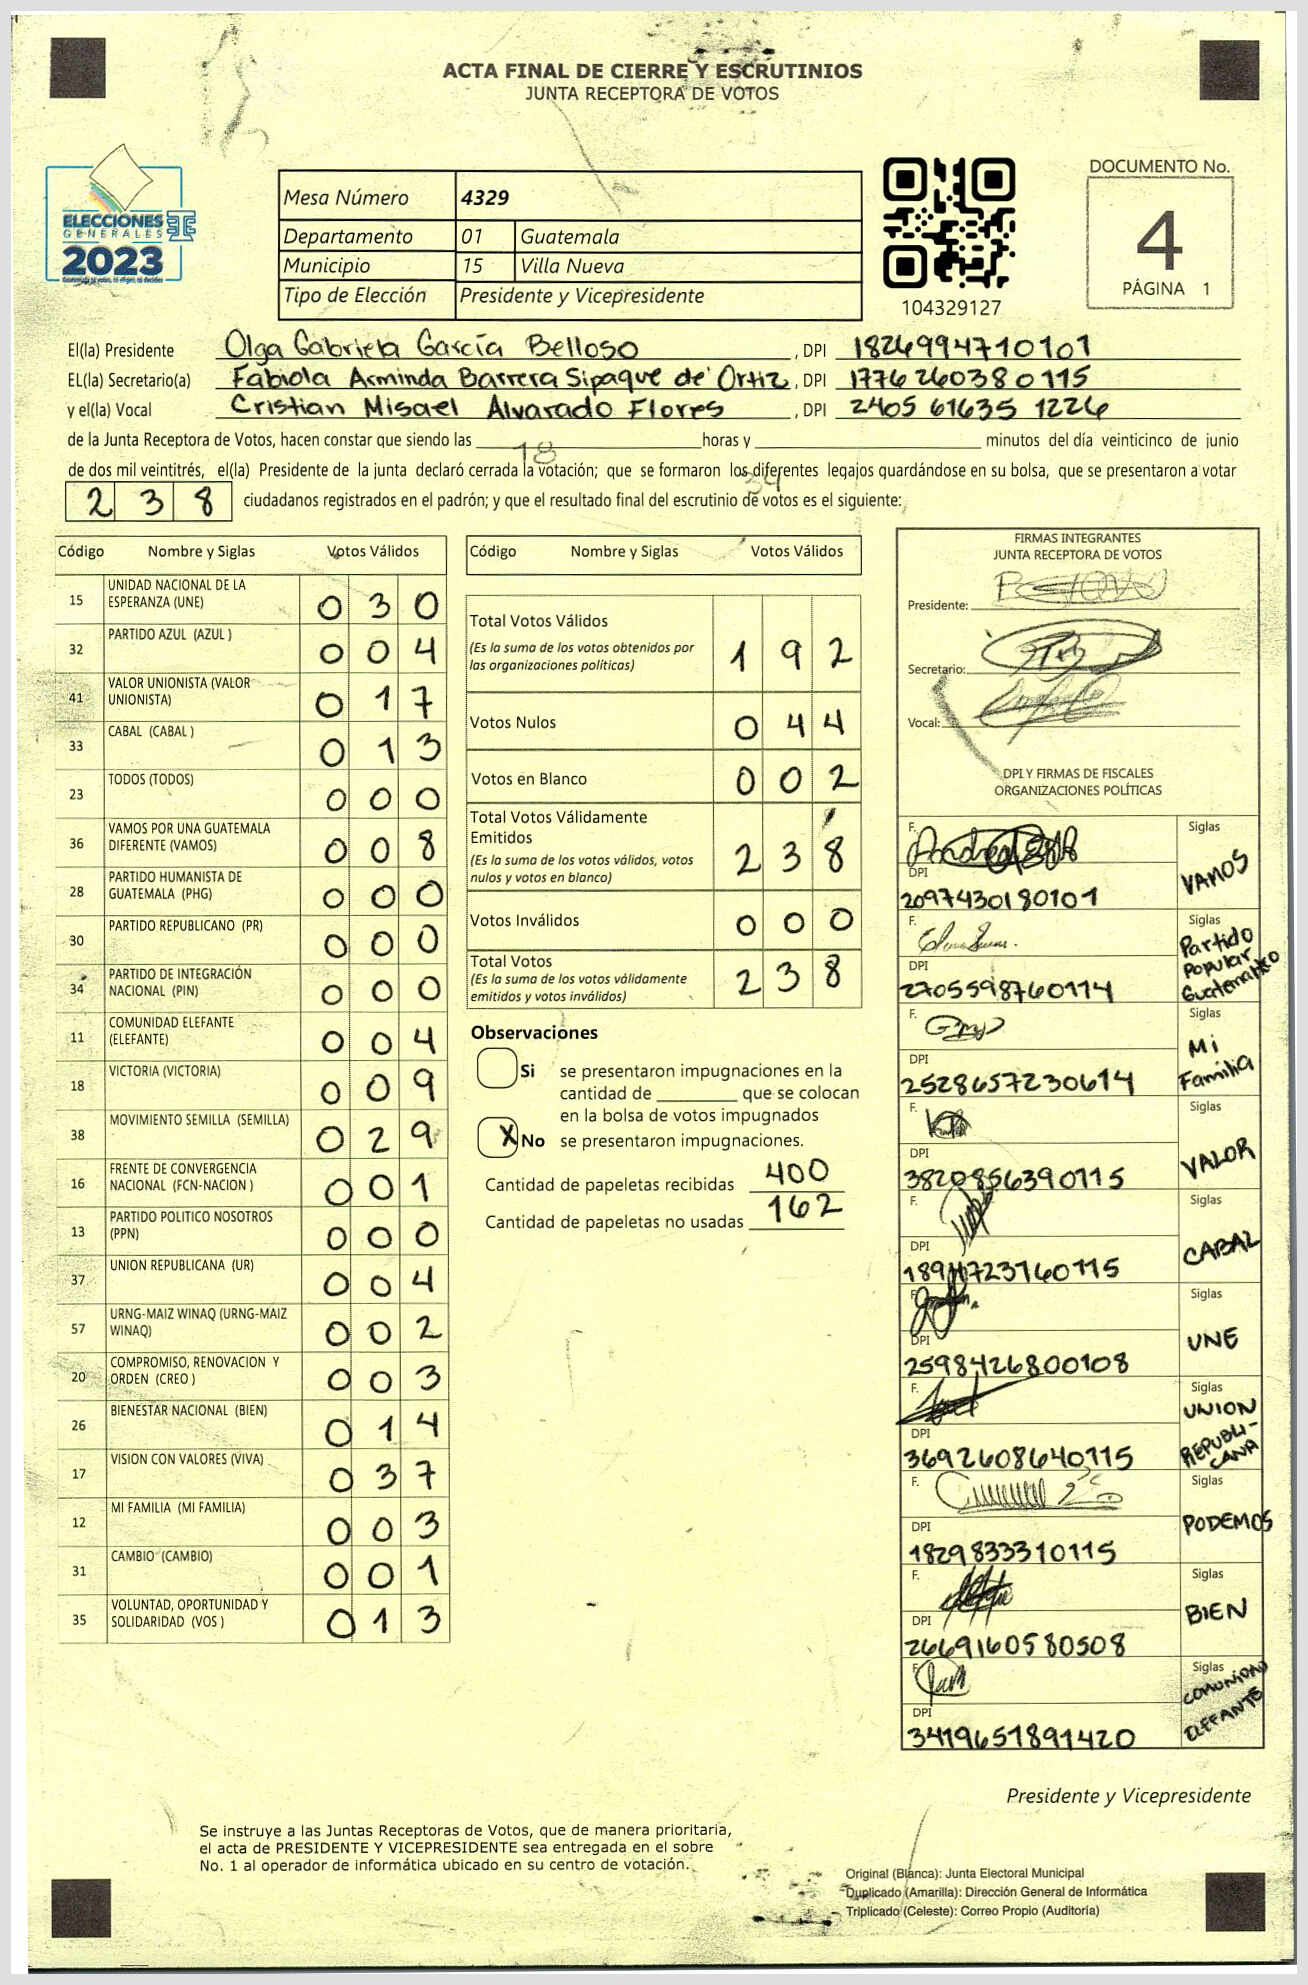 ACTA FINAL DE CIERRE Y ESCRUTINIOS
JUNTA RECEPTORA DE VOTOS
ELECCIONES
GENERALES
2023
Mesa Número 4329
Departamento 01 Guatemala
Municipio 15 Villa Nueva
Tipo de Elección Presidente y Vicepresidente
104329127
DOCUMENTO No.
4
PÁGINA 1
El(la) Presidente Olga Gabriela García Belloso, DPI 1826994710101
EL(la) Secretario(a) Fabiola Arminda Barrera Sipaque de Ortiz, DPI 1776260380115
y el(la) Vocal Cristian Misael Alvarado Flores, DPI 2405 61635 1226
de la Junta Receptora de Votos, hacen constar que siendo las 18 horas y 39 minutos del día veinticinco de junio
de dos mil veintitrés, el(la) Presidente de la junta declaró cerrada la votación; que se formaron los diferentes legajos guardándose en su bolsa, que se presentaron a votar
238 ciudadanos registrados en el padrón; y que el resultado final del escrutinio de votos es el siguiente:
Código Nombre y Siglas Votos Válidos
15 UNIDAD NACIONAL DE LA ESPERANZA (UNE) 030
32 PARTIDO AZUL (AZUL ) 004
41 VALOR UNIONISTA (VALOR UNIONISTA) 017
33 CABAL (CABAL ) 013
23 TODOS (TODOS) 000
36 VAMOS POR UNA GUATEMALA DIFERENTE (VAMOS) 008
28 PARTIDO HUMANISTA DE GUATEMALA (PHG) 000
30 PARTIDO REPUBLICANO (PR) 000
34 PARTIDO DE INTEGRACIÓN NACIONAL (PIN) 000
11 COMUNIDAD ELEFANTE (ELEFANTE) 004
18 VICTORIA (VICTORIA) 009
38 MOVIMIENTO SEMILLA (SEMILLA) 029
16 FRENTE DE CONVERGENCIA NACIONAL (FCN-NACION ) 001
13 PARTIDO POLITICO NOSOTROS (PPN) 000
37 UNION REPUBLICANA (UR) 004
57 URNG-MAIZ WINAQ (URNG-MAIZ WINAQ) 002
20 COMPROMISO, RENOVACION Y ORDEN (CREO ) 003
26 BIENESTAR NACIONAL (BIEN) 014
17 VISION CON VALORES (VIVA) 037
12 MI FAMILIA (MI FAMILIA) 003
31 CAMBIO (CAMBIO) 001
35 VOLUNTAD, OPORTUNIDAD Y SOLIDARIDAD (VOS ) 013
Código Nombre y Siglas Votos Válidos
Total Votos Válidos 192
(Es la suma de los votos obtenidos por
las organizaciones políticas)
Votos Nulos 044
Votos en Blanco 002
Total Votos Válidamente
Emitidos 238
(Es la suma de los votos válidos, votos
nulos y votos en blanco)
Votos Inválidos 000
Total Votos 238
(Es la suma de los votos válidamente
emitidos y votos inválidos)
Observaciones
Si se presentaron impugnaciones en la
cantidad de ________ que se colocan
en la bolsa de votos impugnados
X No se presentaron impugnaciones.
Cantidad de papeletas recibidas 400
Cantidad de papeletas no usadas 162
FIRMAS INTEGRANTES
JUNTA RECEPTORA DE VOTOS
Presidente:
Secretario:
Vocal:
DPI Y FIRMAS DE FISCALES
ORGANIZACIONES POLÍTICAS
F. Siglas
VAMOS
DPI
2097430180101
F. Siglas
Partido
Popular
Guatemalteco
DPI
2705598760114
F. Siglas
Mi
Familia
DPI
2528657230614
F. Siglas
VALOR
DPI
3820856390115
F. Siglas
CABAL
DPI
F. Siglas
UNE
DPI
2598426800108
F. Siglas
UNION
REPUBLI-
CANA
DPI
3692608640115
F. Siglas
PODEMOS
DPI
1829833310115
F. Siglas
BIEN
DPI
2669160580508
F. Siglas
COMUNIDAD
ELEFANTE
DPI
3419651891420
Presidente y Vicepresidente
Se instruye a las Juntas Receptoras de Votos, que de manera prioritaria,
el acta de PRESIDENTE Y VICEPRESIDENTE sea entregada en el sobre
No. 1 al operador de informática ubicado en su centro de votación.
Original (Blanca): Junta Electoral Municipal
Duplicado (Amarilla): Dirección General de Informática
Triplicado (Celeste): Correo Propio (Auditoría)